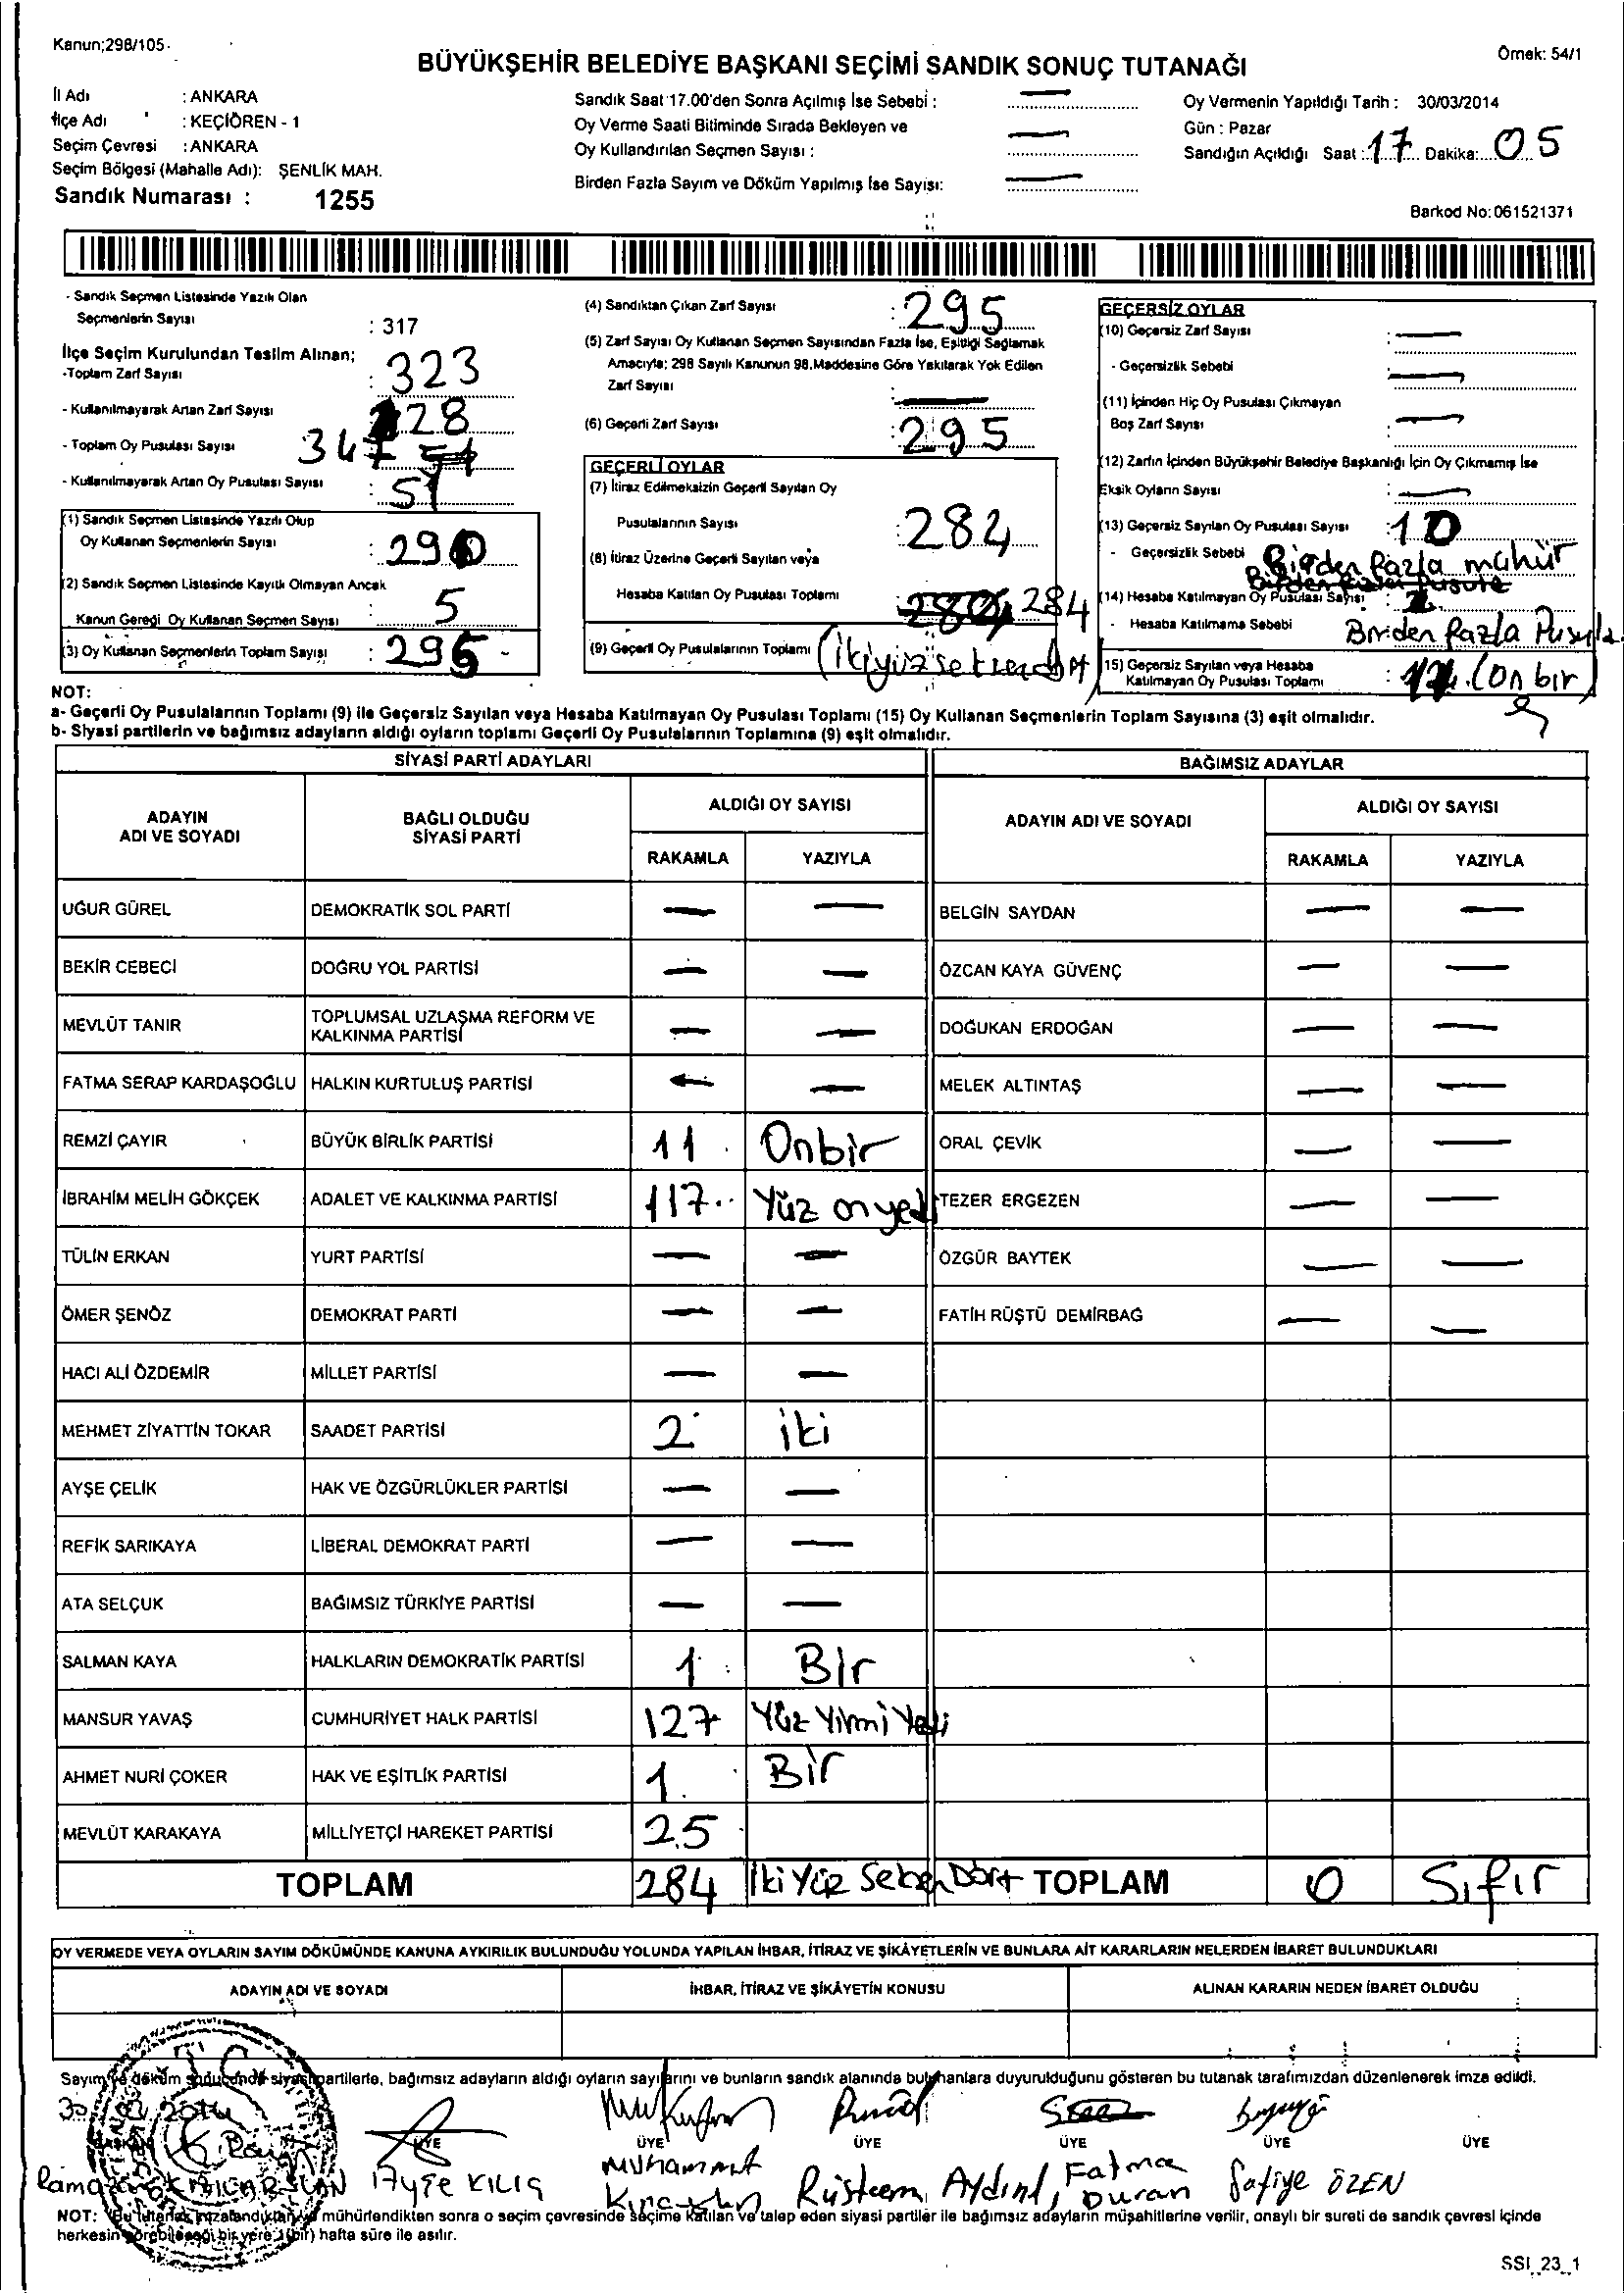 Kanun;298/105
Örnek: 54/1
BÜYÜKŞEHİR BELEDİYE BAŞKANI SEÇİMİ SANDIK SONUÇ TUTANAĞI
İl Adı : ANKARA
İlçe Adı : KEÇİÖREN - 1
Seçim Çevresi : ANKARA
Seçim Bölgesi (Mahalle Adı): ŞENLİK MAH.
Sandık Numarası : 1255
Sandık Saat 17.00'den Sonra Açılmış İse Sebebi : —
Oy Verme Saati Bitiminde Sırada Bekleyen ve
Oy Kullandırılan Seçmen Sayısı : —
Birden Fazla Sayım ve Döküm Yapılmış İse Sayısı: —
Oy Vermenin Yapıldığı Tarih : 30/03/2014
Gün : Pazar
Sandığın Açıldığı Saat : 17 Dakika: 05
Barkod No:061521371
- Sandık Seçmen Listesinde Yazılı Olan
Seçmenlerin Sayısı : 317
İlçe Seçim Kurulundan Teslim Alınan;
-Toplam Zarf Sayısı : 323
- Kullanılmayarak Artan Zarf Sayısı 28
- Toplam Oy Pusulası Sayısı 347
- Kullanılmayarak Artan Oy Pusulası Sayısı : 51
(1) Sandık Seçmen Listesinde Yazılı Olup
Oy Kullanan Seçmenlerin Sayısı : 290
(2) Sandık Seçmen Listesinde Kayıtlı Olmayan Ancak
Kanun Gereği Oy Kullanan Seçmen Sayısı 5
(3) Oy Kullanan Seçmenlerin Toplam Sayısı : 295
(4) Sandıktan Çıkan Zarf Sayısı : 295
(5) Zarf Sayısı Oy Kullanan Seçmen Sayısından Fazla İse, Eşitliği Sağlamak
Amacıyla; 298 Sayılı Kanunun 98.Maddesine Göre Yakılarak Yok Edilen
Zarf Sayısı : —
(6) Geçerli Zarf Sayısı : 295
GEÇERLİ OYLAR
(7) İtiraz Edilmeksizin Geçerli Sayılan Oy
Pusulalarının Sayısı : 284
(8) İtiraz Üzerine Geçerli Sayılan veya
Hesaba Katılan Oy Pusulası Toplamı 284
(9) Geçerli Oy Pusulalarının Toplamı (İkiyüzseksendört)
GEÇERSİZ OYLAR
(10) Geçersiz Zarf Sayısı : —
- Geçersizlik Sebebi : —
(11) İçinden Hiç Oy Pusulası Çıkmayan
Boş Zarf Sayısı : —
(12) Zarfın İçinden Büyükşehir Belediye Başkanlığı İçin Oy Çıkmamış İse
Eksik Oyların Sayısı : —
(13) Geçersiz Sayılan Oy Pusulası Sayısı : 10
- Geçersizlik Sebebi Birden fazla mühür
(14) Hesaba Katılmayan Oy Pusulası Sayısı :
- Hesaba Katılmama Sebebi Birden fazla Pusula
(15) Geçersiz Sayılan veya Hesaba
Katılmayan Oy Pusulası Toplamı : 11 (On bir)
NOT:
a- Geçerli Oy Pusulalarının Toplamı (9) ile Geçersiz Sayılan veya Hesaba Katılmayan Oy Pusulası Toplamı (15) Oy Kullanan Seçmenlerin Toplam Sayısına (3) eşit olmalıdır.
b- Siyasi partilerin ve bağımsız adayların aldığı oyların toplamı Geçerli Oy Pusulalarının Toplamına (9) eşit olmalıdır.
SİYASİ PARTİ ADAYLARI BAĞIMSIZ ADAYLAR
ADAYIN ADI VE SOYADI BAĞLI OLDUĞU SİYASİ PARTİ ALDIĞI OY SAYISI ADAYIN ADI VE SOYADI ALDIĞI OY SAYISI
RAKAMLA YAZIYLA RAKAMLA YAZIYLA
UĞUR GÜREL DEMOKRATİK SOL PARTİ — — BELGİN SAYDAN — —
BEKİR CEBECİ DOĞRU YOL PARTİSİ — — ÖZCAN KAYA GÜVENÇ — —
MEVLÜT TANIR TOPLUMSAL UZLAŞMA REFORM VE KALKINMA PARTİSİ — — DOĞUKAN ERDOĞAN — —
FATMA SERAP KARDAŞOĞLU HALKIN KURTULUŞ PARTİSİ — — MELEK ALTINTAŞ — —
REMZİ ÇAYIR BÜYÜK BİRLİK PARTİSİ 11 Onbir ORAL ÇEVİK — —
İBRAHİM MELİH GÖKÇEK ADALET VE KALKINMA PARTİSİ 117 Yüz onyedi TEZER ERGEZEN — —
TÜLİN ERKAN YURT PARTİSİ — — ÖZGÜR BAYTEK — —
ÖMER ŞENÖZ DEMOKRAT PARTİ — — FATİH RÜŞTÜ DEMİRBAĞ — —
HACI ALİ ÖZDEMİR MİLLET PARTİSİ — —
MEHMET ZİYATTİN TOKAR SAADET PARTİSİ 2 iki
AYŞE ÇELİK HAK VE ÖZGÜRLÜKLER PARTİSİ — —
REFİK SARIKAYA LİBERAL DEMOKRAT PARTİ — —
ATA SELÇUK BAĞIMSIZ TÜRKİYE PARTİSİ — —
SALMAN KAYA HALKLARIN DEMOKRATİK PARTİSİ 1 Bir
MANSUR YAVAŞ CUMHURİYET HALK PARTİSİ 127 Yüz Yirmi Yedi
AHMET NURİ ÇOKER HAK VE EŞİTLİK PARTİSİ 1 Bir
MEVLÜT KARAKAYA MİLLİYETÇİ HAREKET PARTİSİ 25
TOPLAM 284 İkiYüz Seksen Dört TOPLAM 0 Sıfır
OY VERMEDE VEYA OYLARIN SAYIM DÖKÜMÜNDE KANUNA AYKIRILIK BULUNDUĞU YOLUNDA YAPILAN İHBAR, İTİRAZ VE ŞİKÂYETLERİN VE BUNLARA AİT KARARLARIN NELERDEN İBARET BULUNDUKLARI
ADAYIN ADI VE SOYADI İHBAR, İTİRAZ VE ŞİKÂYETİN KONUSU ALINAN KARARIN NEDEN İBARET OLDUĞU
Sayım ve döküm sonucunda siyasi partilerle, bağımsız adayların aldığı oyların sayılarını ve bunların sandık alanında bulunanlara duyurulduğunu gösteren bu tutanak tarafımızdan düzenlenerek imza edildi.
BAŞKAN ÜYE ÜYE ÜYE ÜYE ÜYE ÜYE
Ayşe KILIÇ Rüstem Aydın Fatma Duran Safiye ÖZEN
NOT: Bu tutanak imzalandıktan ve mühürlendikten sonra o seçim çevresinde seçime katılan ve talep eden siyasi partiler ile bağımsız adayların müşahitlerine verilir, onaylı bir sureti de sandık çevresi içinde
herkesin görebileceği bir yere 1(bir) hafta süre ile asılır.
SSI_23_1